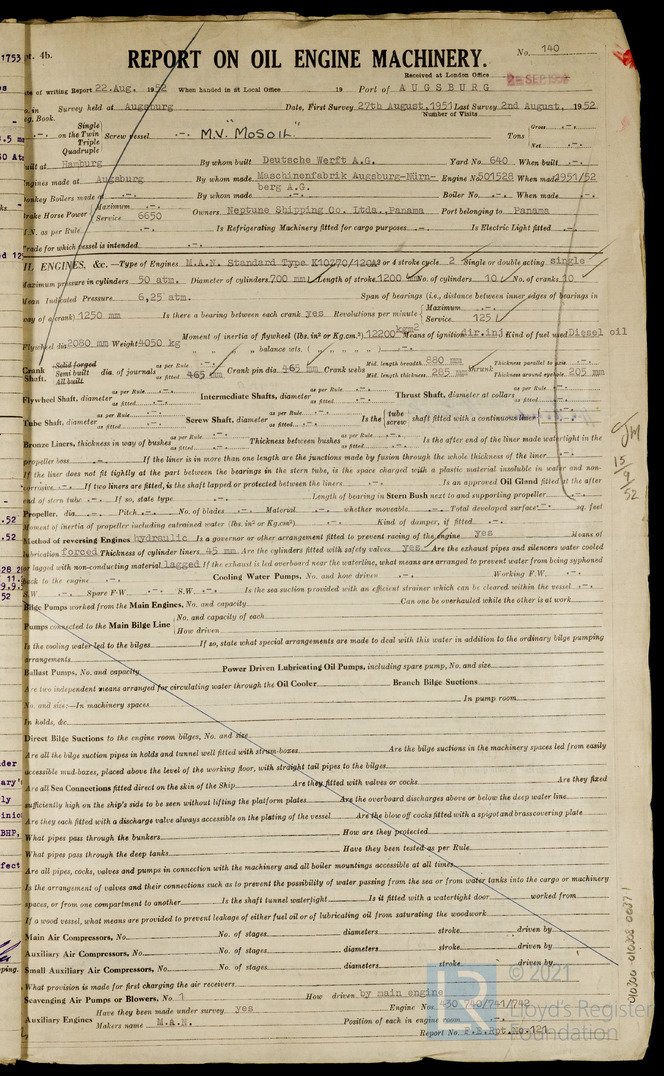 pt. 4b. REPORT ON OIL ENGINE MACHINERY. No. 140
Received at London Office 2 SEP 1952
Date of writing Report 22.Aug. 1952 When handed in at Local Office 19 Port of AUGSBURG
Survey held at Augsburg Date, First Survey 27th August, 1951 Last Survey 2nd August, 1952
Reg. Book. Number of Visits
Single
on the Twin
Triple
Quadruple
Screw vessel -.- M.V. "MOSOIL" Tons Gross -.- Net -.-
Built at Hamburg By whom built Deutsche Werft A.G. Yard No. 640 When built -.-
Engines made at Augsburg By whom made Maschinenfabrik Augsburg-Nürn- Engine No. 501528 When made 1951/52
berg A.G.
Donkey Boilers made at -.- By whom made -.- Boiler No. -.- When made -.-
Brake Horse Power Maximum -.- Service 6650 Owners Neptune Shipping Co. Ltda., Panama Port belonging to Panama
N. as per Rule -.- Is Refrigerating Machinery fitted for cargo purposes -.- Is Electric Light fitted -.-
Trade for which vessel is intended -.-
OIL ENGINES, &c.—Type of Engines M.A.N. Standard Type K10Z70/120A2 2 or 4 stroke cycle 2 Single or double acting single
Maximum pressure in cylinders 50 atm. Diameter of cylinders 700 mm Length of stroke 1200 mm No. of cylinders 10 No. of cranks 10
Mean Indicated Pressure 6,25 atm. Span of bearings (i.e., distance between inner edges of bearings in
way of a crank) 1250 mm Is there a bearing between each crank yes Revolutions per minute Maximum -.- Service 125
Flywheel dia 2080 mm Weight 4050 kg Moment of inertia of flywheel (lbs. in² or Kg.cm²) 12200 kgm2 Means of ignition air.inj Kind of fuel used Diesel oil
" " " balance wts. ( " " " " ) -.-
Crank Shaft. Solid forged Semi built All built dia. of journals as per Rule -.- as fitted 465 mm Crank pin dia. 465 mm Crank webs Mid. length breadth 880 mm Mid. length thickness 285 mm shrunk Thickness parallel to axis -.- Thickness around eyehole 205 mm
Flywheel Shaft, diameter as per Rule -.- as fitted -.- Intermediate Shafts, diameter as per Rule -.- as fitted -.- Thrust Shaft, diameter at collars as per Rule -.- as fitted -.-
Tube Shaft, diameter as per Rule -.- as fitted -.- Screw Shaft, diameter as per Rule -.- as fitted -.- Is the tube screw shaft fitted with a continuous liner
Bronze Liners, thickness in way of bushes as per Rule -.- as fitted -.- Thickness between bushes as per Rule -.- as fitted -.- Is the after end of the liner made watertight in the
propeller boss -.- If the liner is in more than one length are the junctions made by fusion through the whole thickness of the liner -.-
If the liner does not fit tightly at the part between the bearings in the stern tube, is the space charged with a plastic material insoluble in water and non-
corrosive -.- If two liners are fitted, is the shaft lapped or protected between the liners -.- Is an approved Oil Gland fitted at the after
end of stern tube -.- If so, state type -.- Length of bearing in Stern Bush next to and supporting propeller -.-
Propeller, dia. -.- Pitch -.- No. of blades -.- Material -.- whether moveable -.- Total developed surface -.- sq. feet
Moment of inertia of propeller including entrained water (lbs. in² or Kg.cm²) -.- Kind of damper, if fitted -.-
Method of reversing Engines hydraulic Is a governor or other arrangement fitted to prevent racing of the engine yes Means of
lubrication forced Thickness of cylinder liners 45 mm Are the cylinders fitted with safety valves yes Are the exhaust pipes and silencers water cooled
or lagged with non-conducting material lagged If the exhaust is led overboard near the waterline, what means are arranged to prevent water from being syphoned
back to the engine -.- Cooling Water Pumps, No. and how driven -.- Working F.W. -.-
S.W. -.- Spare F.W. -.- S.W. -.- Is the sea suction provided with an efficient strainer which can be cleared within the vessel -.-
Bilge Pumps worked from the Main Engines, No. and capacity Can one be overhauled while the other is at work
Pumps connected to the Main Bilge Line No. and capacity of each
How driven
Is the cooling water led to the bilges If so, state what special arrangements are made to deal with this water in addition to the ordinary bilge pumping
arrangements
Ballast Pumps, No. and capacity Power Driven Lubricating Oil Pumps, including spare pump, No. and size
Are two independent means arranged for circulating water through the Oil Cooler Branch Bilge Suctions
No. and size:—In machinery spaces In pump room
In holds, &c.
Direct Bilge Suctions to the engine room bilges, No. and size
Are all the bilge suction pipes in holds and tunnel well fitted with strum-boxes Are the bilge suctions in the machinery spaces led from easily
accessible mud-boxes, placed above the level of the working floor, with straight tail pipes to the bilges
Are all Sea Connections fitted direct on the skin of the Ship Are they fitted with valves or cocks Are they fixed
sufficiently high on the ship's side to be seen without lifting the platform plates Are the overboard discharges above or below the deep water line
Are they each fitted with a discharge valve always accessible on the plating of the vessel Are the blow off cocks fitted with a spigot and brass covering plate
What pipes pass through the bunkers How are they protected
What pipes pass through the deep tanks Have they been tested as per Rule
Are all pipes, cocks, valves and pumps in connection with the machinery and all boiler mountings accessible at all times
Is the arrangement of valves and their connections such as to prevent the possibility of water passing from the sea or from water tanks into the cargo or machinery
spaces, or from one compartment to another Is the shaft tunnel watertight Is it fitted with a watertight door worked from
If a wood vessel, what means are provided to prevent leakage of either fuel oil or of lubricating oil from saturating the woodwork
Main Air Compressors, No. No. of stages diameters stroke driven by
Auxiliary Air Compressors, No. No. of stages diameters stroke driven by
Small Auxiliary Air Compressors, No. No. of stages diameters stroke driven by
What provision is made for first charging the air receivers
Scavenging Air Pumps or Blowers, No. 1 How driven by main engine
Auxiliary Engines Have they been made under survey yes Engine Nos. 430 740/741/742
Makers name M.A.N. Position of each in engine room -.-
Report No. F.E.Rpt.No.121
JM
15
9
52
010200-010208-0037
© 2021
Lloyd's Register
Foundation